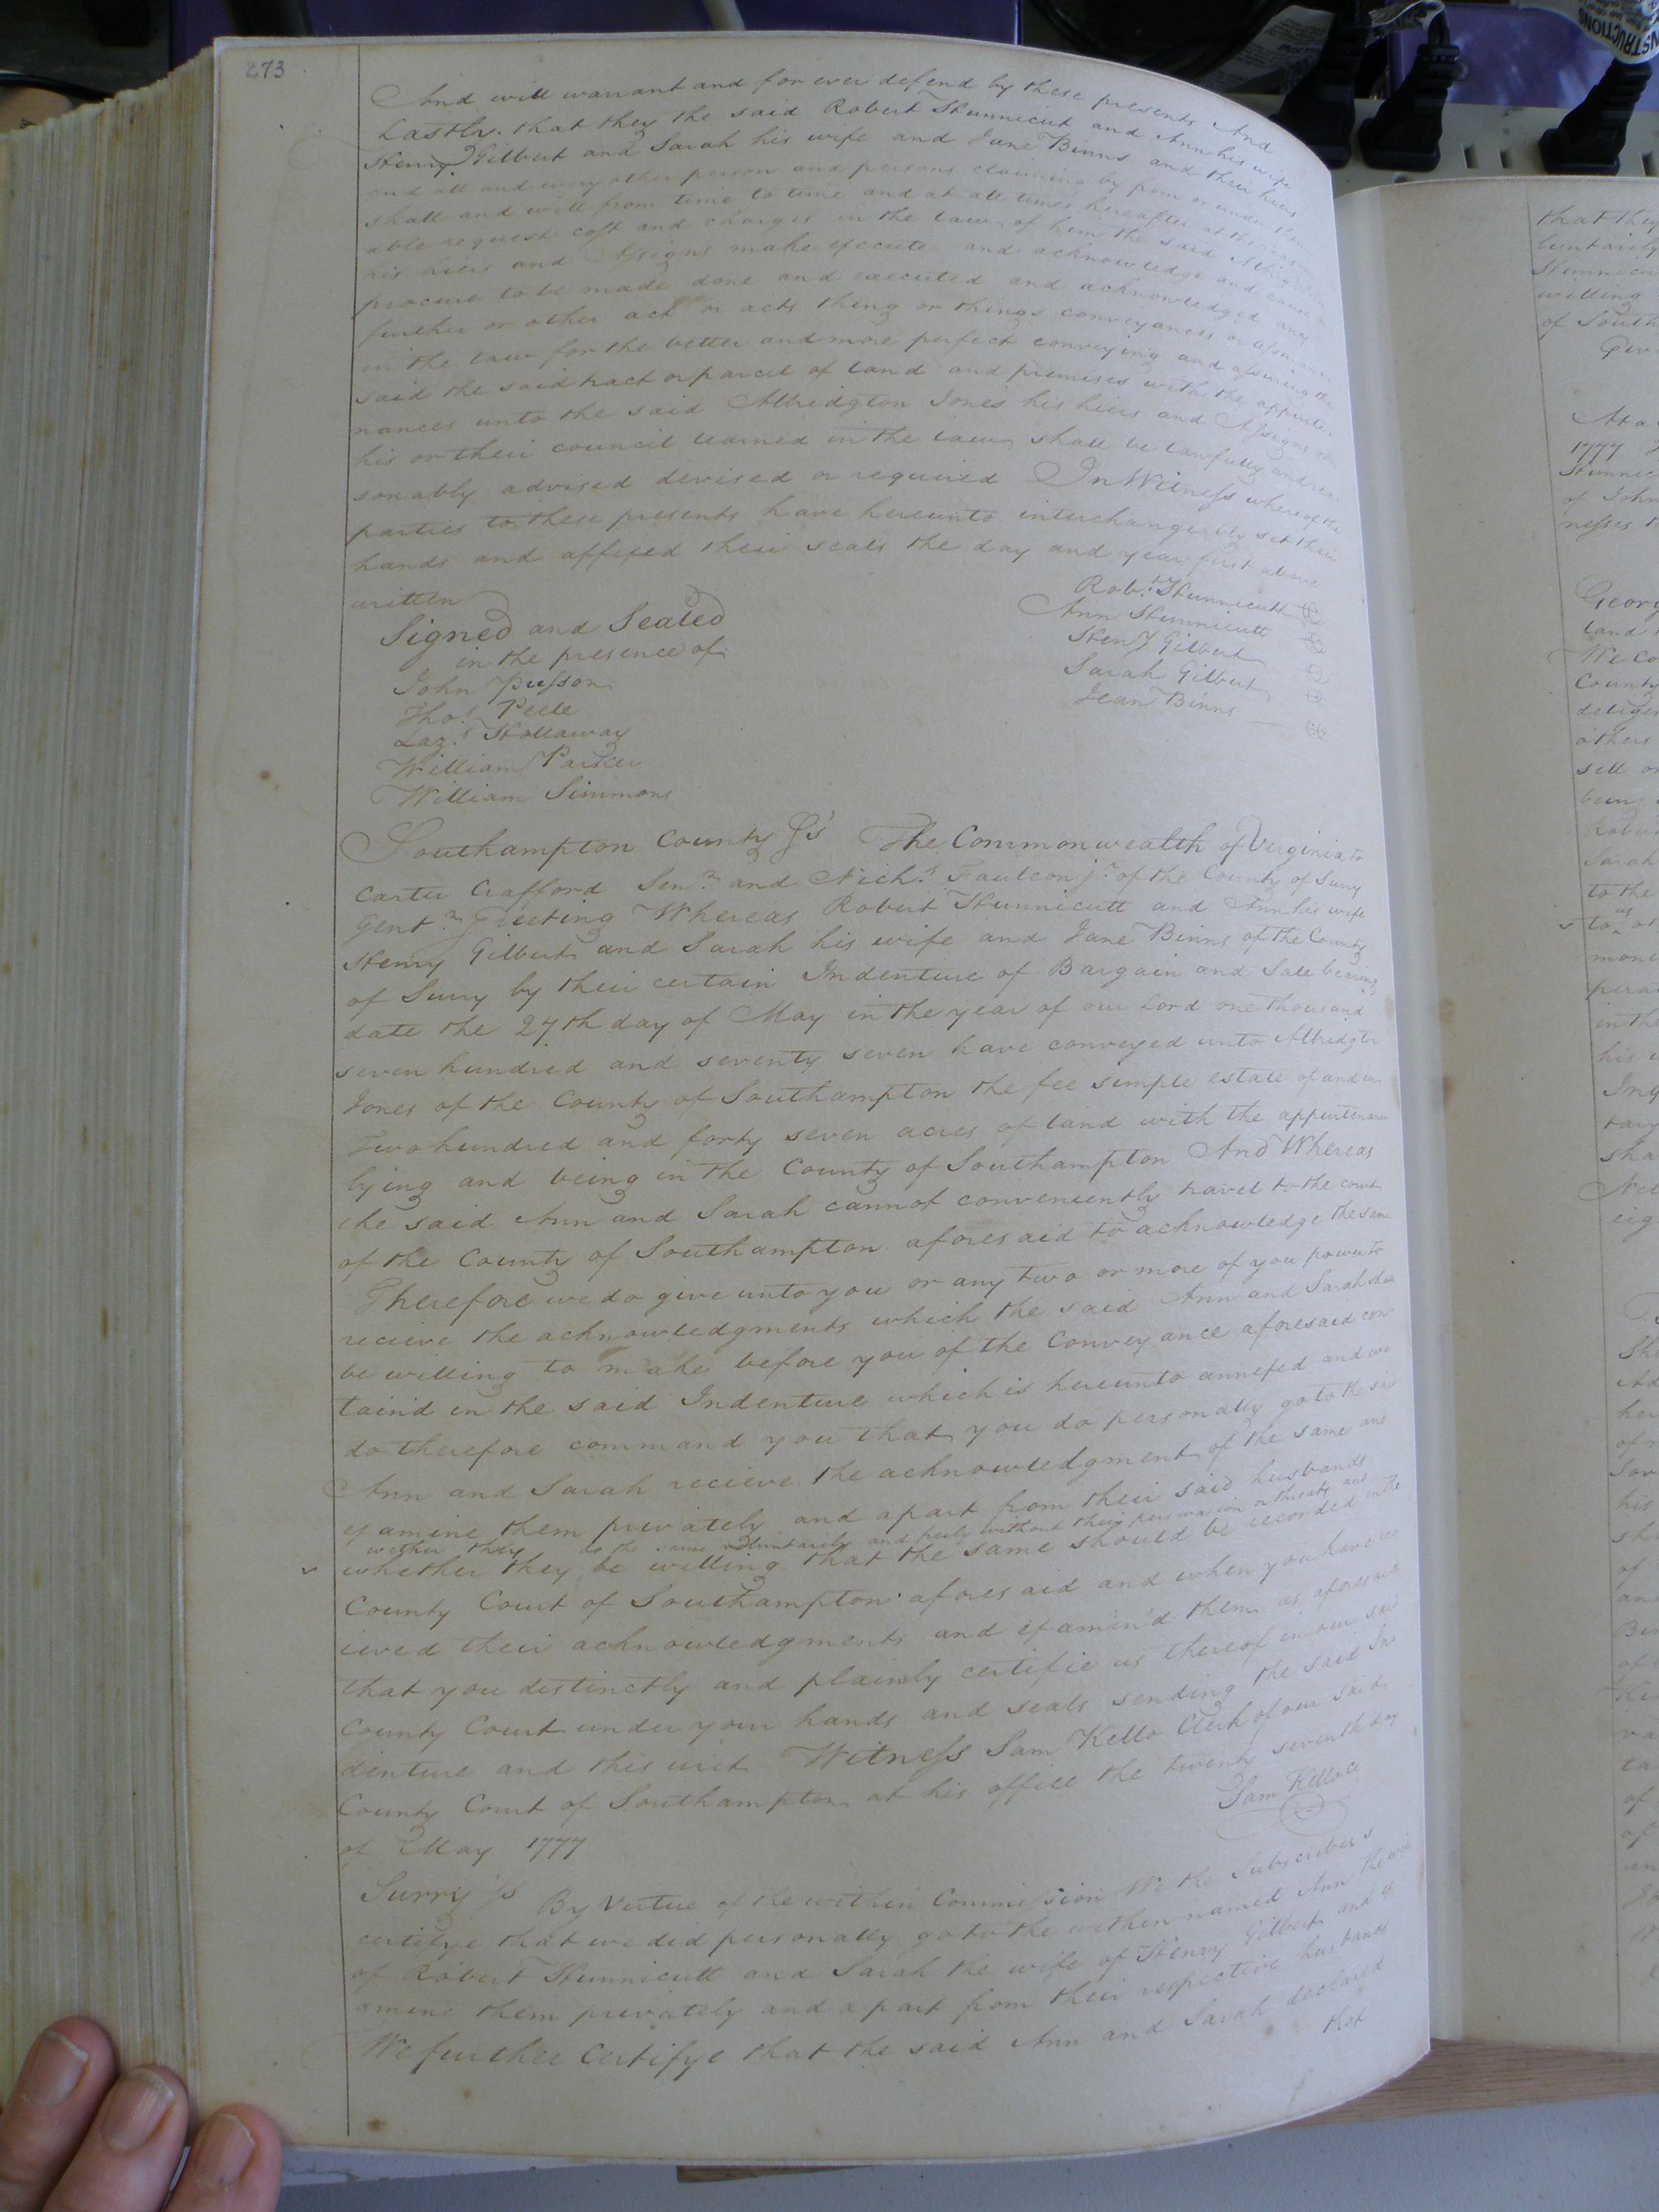 273
And will warrant and for ever defend by these presents And
Lastly. that they the said Robert Hunnicut and Ann his wife
Henry Gilbert and Sarah his wife and Jane Binns and their heirs
and all and every other person and persons claiming by from or under them
shall and will from time to time and at all times hereafter at the
able request cost and charges in the law of him the said
his heirs and Assigns make execute and acknowledge and cause or
procure to be made done and executed and acknowledged any
further or other act or acts thing or things conveyances or assurances
in the law for the better and more perfect conveying and assuring the
said the said tract or parcel of land and premises with the appurte-
nances unto the said Albridgton Jones his hiers and Assigns
his or their council learned in the law shall be lawfully and rea-
sonably advised devised or required In Witness whereof the
parties to these presents have hereunto interchangeably set their
hands and affixed their seals the day and year first above
written
Robt. Hunnicutt
Signed and Sealed
Ann Hunnicutt
in the presence of
Heny Gilbert
John Presson
Sarah Gilbert
Thos. Peele
Jean Binns
Lazs. Hollaway
William Parker
William Simmons
Southampton County Ss The Commonwealth of Virginia to
Carter Crafford Senr. and Nichs. Faulcon jr. of the County of Surry
Gentn. Greeting Whereas Robert Hunnicutt and Ann his wife
Henry Gilbert and Sarah his wife and Jane Binns of the County
of Surry by their certain Indenture of Bargain and Sale bearing
date the 27th day of May in the year of our Lord one thousand
seven hundred and seventy seven have conveyed unto Albridgtn
Jones of the County of Southampton the fee simple estate of and in
Two hundred and forty seven acres of land with the appurtenances
lying and being in the County of Southampton And Whereas
the said Ann and Sarah cannot conveniently travel to the court
of the County of Southampton aforesaid to acknowledge the same
Therefore we do give unto you or any two or more of you power to
recieve the acknowledgments which the said Ann and Sarah shall
be willing to make before you of the Conveyance aforesaid con
taind in the said Indenture which is hereunto annexed and we
do therefore command you that you do personally go to the said
Ann and Sarah recieve the acknowledgment of the same and
examine them privately and apart from their said husbands
wether they do the same voluntarily and freely without their perswasion or threats and
whether they be willing that the same should be recorded in the
County Court of Southampton aforesaid and when you have rec
ieved their acknowledgments and examin'd them as aforesaid
that you distinctly and plainly certifie us thereof in our said
County Court under your hands and seals sending the said In
denture and this writ Witness Sam Kello Clerk of our said
County Court of Southampton at his office the twenty seventh day
of May 1777
Sam Kello
Surry Ss By Virtue of the within Commission We the Subscribers
certifye that we did personally go to the within named Ann the wife
of Robert Hunnicutt and Sarah the wife of Henry Gilbert and ex
amine them privately and apart from their respective husbands
We further Certifye that the said Ann and Sarah declared
that
that they
luntarily
willing
of South
1777
of John
nesses
Georg
land
We Co
County
others
sell or
being
Sarah
to the
us
to of
in the
his